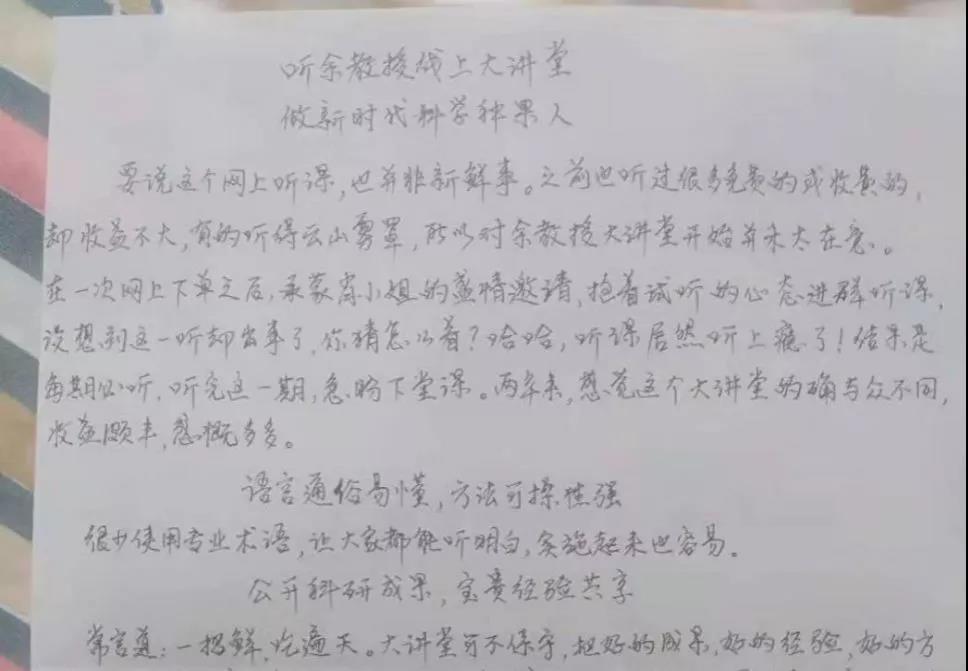 听余教授线上大讲堂
做新时代科学种果人
要说这个网上听课,也并非新鲜事。之前也听过很多免费的或收费的,
却收益不大,有的听得云山雾罩,所以对余教授大讲堂开始并未太在意。
在一次网上下单之后,承蒙肖小姐的盛情邀请,抱着试听的心态进群听课,
没想到这一听却出事了,你猜怎么着?哈哈,听课居然听上瘾了!结果是
每期必听,听完这一期,急盼下堂课。两年来,感觉这个大讲堂的确与众不同,
收益颇丰,感慨多多。
语言通俗易懂,方法可操性强
很少使用专业术语,让大家都能听明白,实施起来也容易。
公开科研成果,宝贵经验共享
常言道:一招鲜,吃遍天。大讲堂可不保守,把好的成果,好的经验,好的方